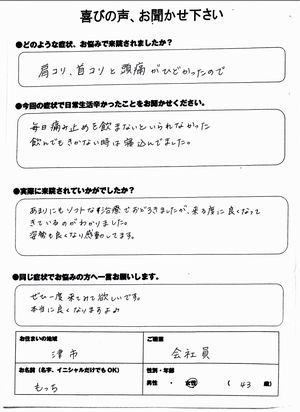 喜びの声、お聞かせ下さい
●どのような症状、お悩みで来院されましたか？
肩コリ、首コリと頭痛がひどかったので
●今回の症状で日常生活辛かったことをお聞かせください。
毎日痛み止めを飲まないといられなかった
飲んでもきかない時は寝込んでました。
●実際に来院されていかがでしたか？
あまりにもソフトな治療でおどろきましたが、来る度に良くなって
きているのがわかりました。
姿勢も良くなり感動してます。
●同じ症状でお悩みの方へ一言お願いします。
ぜひ一度来てみて欲しいです。
本当に良くなりますよ
お住まいの地域 ご職業
津市 会社員
お名前（名字、イニシャルだけでもOK） 性別・年齢
もっち 男性・女性 （43歳）